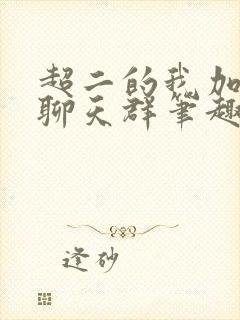 超二的我加
聊天群笔趣
逢砂